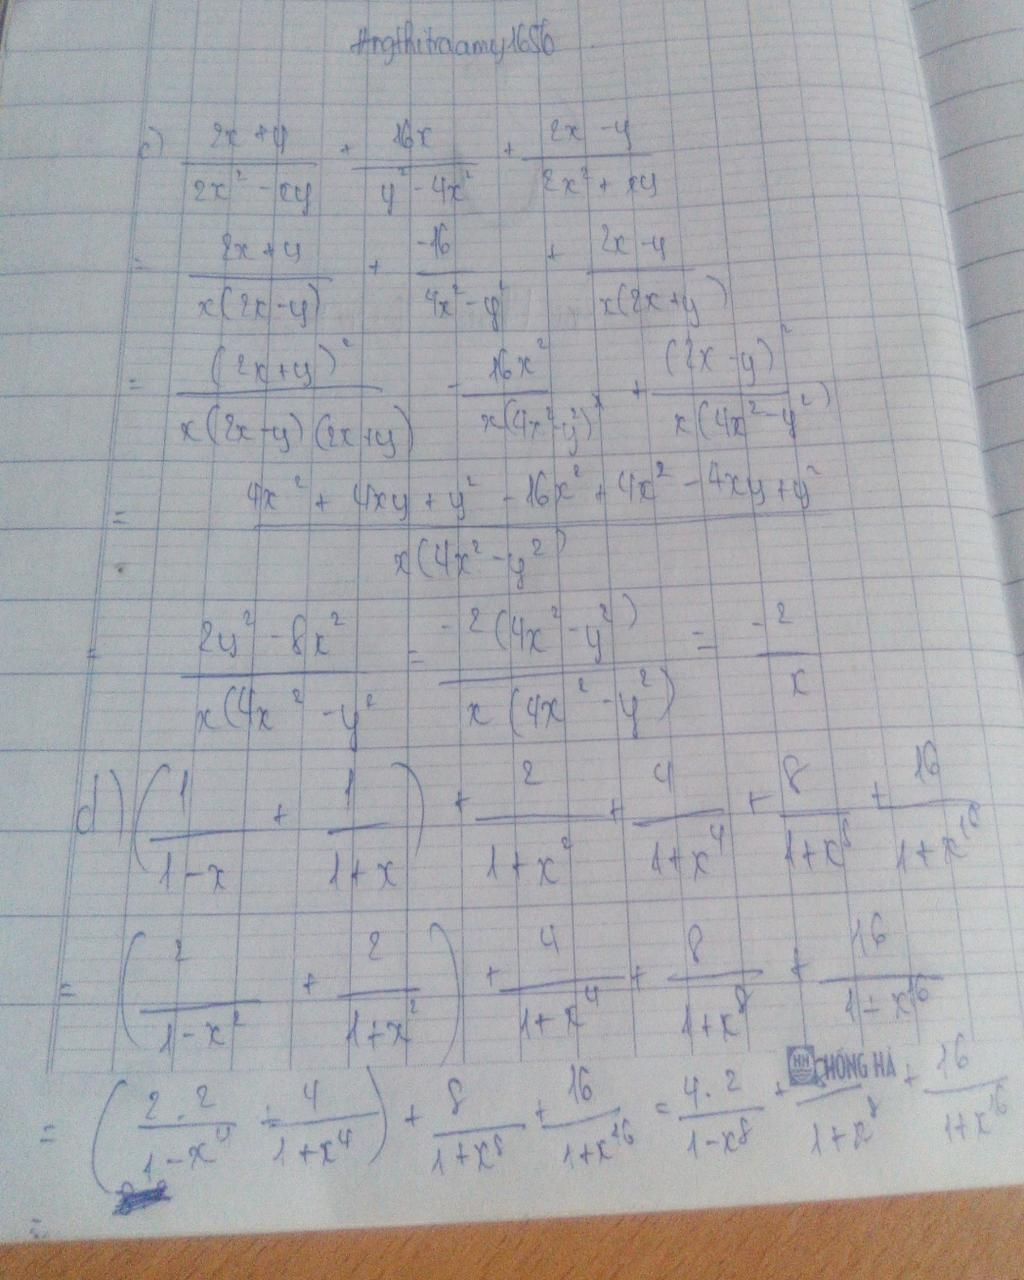 Hngthitraamy1656
c) (2x + y)/(2x² - xy) + 16x/(y² - 4x²) + (2x - y)/(2x² + xy)
= (2x + y)/(x(2x - y)) + -16/(4x² - y²) + (2x - y)/(x(2x + y))
= (2x + y)²/(x(2x - y)(2x + y)) - 16x²/(x(4x² - y²)) + (2x - y)²/(x(4x² - y²))
= (4x² + 4xy + y² - 16x² + 4x² - 4xy + y²)/(x(4x² - y²))
= (2y² - 8x²)/(x(4x² - y²) = -2(4x² - y²)/(x(4x² - y²)) = -2/x
d) (1/(1 - x) + 1/(1 + x)) + 2/(1 + x²) + 4/(1 + x⁴) + 8/(1 + x⁸) + 16/(1 + x¹⁶)
= (2/(1 - x²) + 2/(1 + x²)) + 4/(1 + x⁴) + 8/(1 + x⁸) + 16/(1 + x¹⁶)
= (2 . 2/(1 - x⁴) + 4/(1 + x⁴)) + 8/(1 + x⁸) + 16/(1 + x¹⁶) = 4 . 2/(1 - x⁸) + /(1 + x⁸) + 16/(1 + x¹⁶)
HH HỒNG HÀ
=